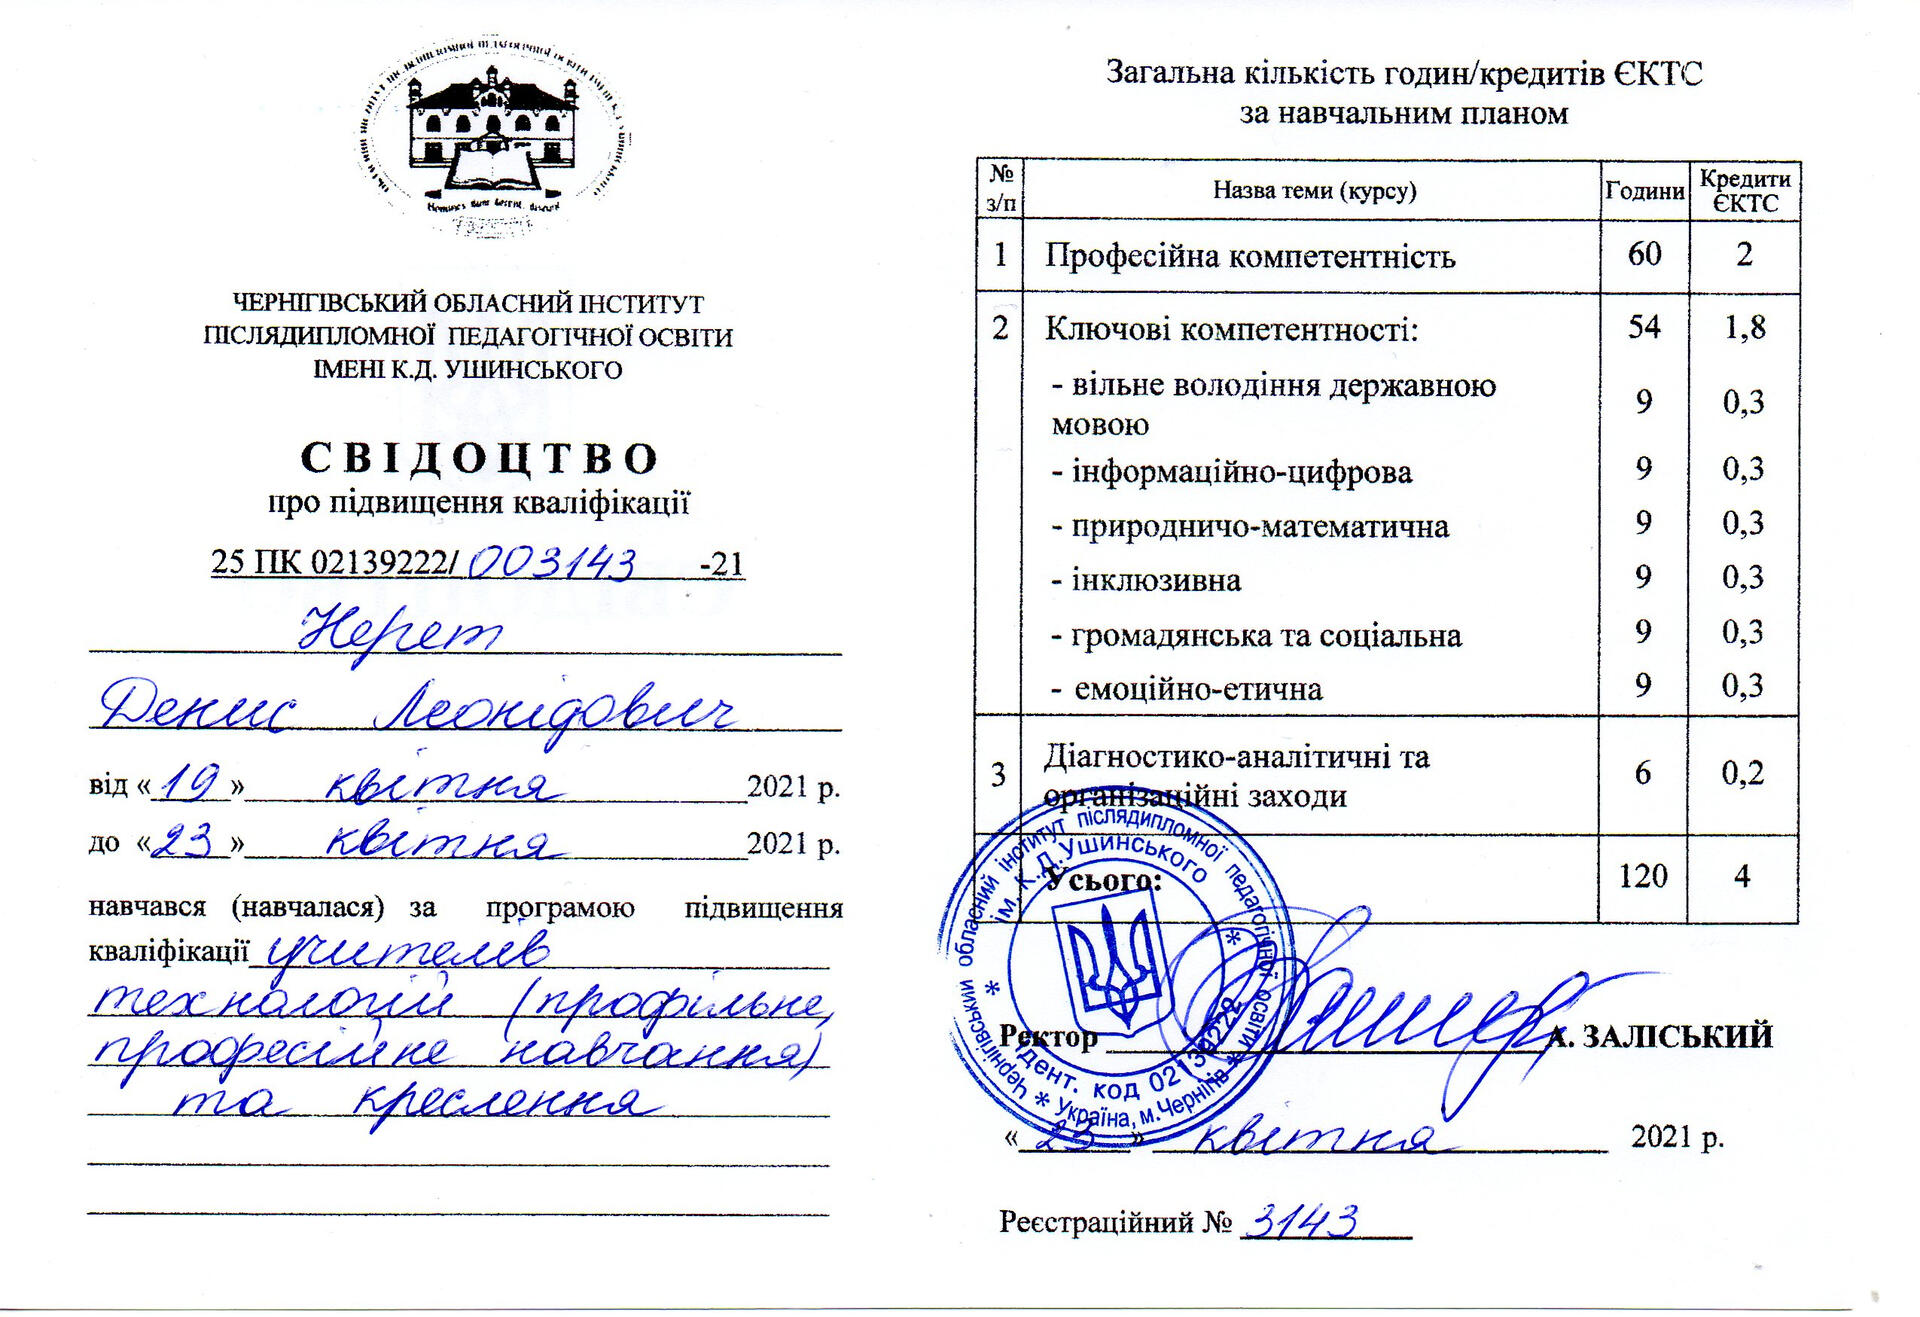 ЧЕРНІГІВСЬКИЙ ОБЛАСНИЙ ІНСТИТУТ
ПІСЛЯДИПЛОМНОЇ ПЕДАГОГІЧНОЇ ОСВІТИ
ІМЕНІ К.Д. УШИНСЬКОГО
СВІДОЦТВО
про підвищення кваліфікації
25 ПК 02139222/ 003143 -21
Нерет
Денис Леонідович
від «19» квітня 2021 р.
до «23» квітня 2021 р.
навчався (навчалася) за програмою підвищення
кваліфікації учителів
технологій (профільне,
професійне навчання)
та креслення
Загальна кількість годин/кредитів ЄКТС
за навчальним планом
№ з/п Назва теми (курсу) Години Кредити ЄКТС
1 Професійна компетентність 60 2
2 Ключові компетентності: 54 1,8
- вільне володіння державною
мовою 9 0,3
- інформаційно-цифрова 9 0,3
- природничо-математична 9 0,3
- інклюзивна 9 0,3
- громадянська та соціальна 9 0,3
- емоційно-етична 9 0,3
3 Діагностико-аналітичні та
організаційні заходи 6 0,2
Усього: 120 4
Чернігівський обласний інститут післядипломної педагогічної освіти
ім. К.Д.Ушинського
Ідент. код 02139222
* Україна, м.Чернігів *
Ректор А. ЗАЛІСЬКИЙ
«23» квітня 2021 р.
Реєстраційний № 3143